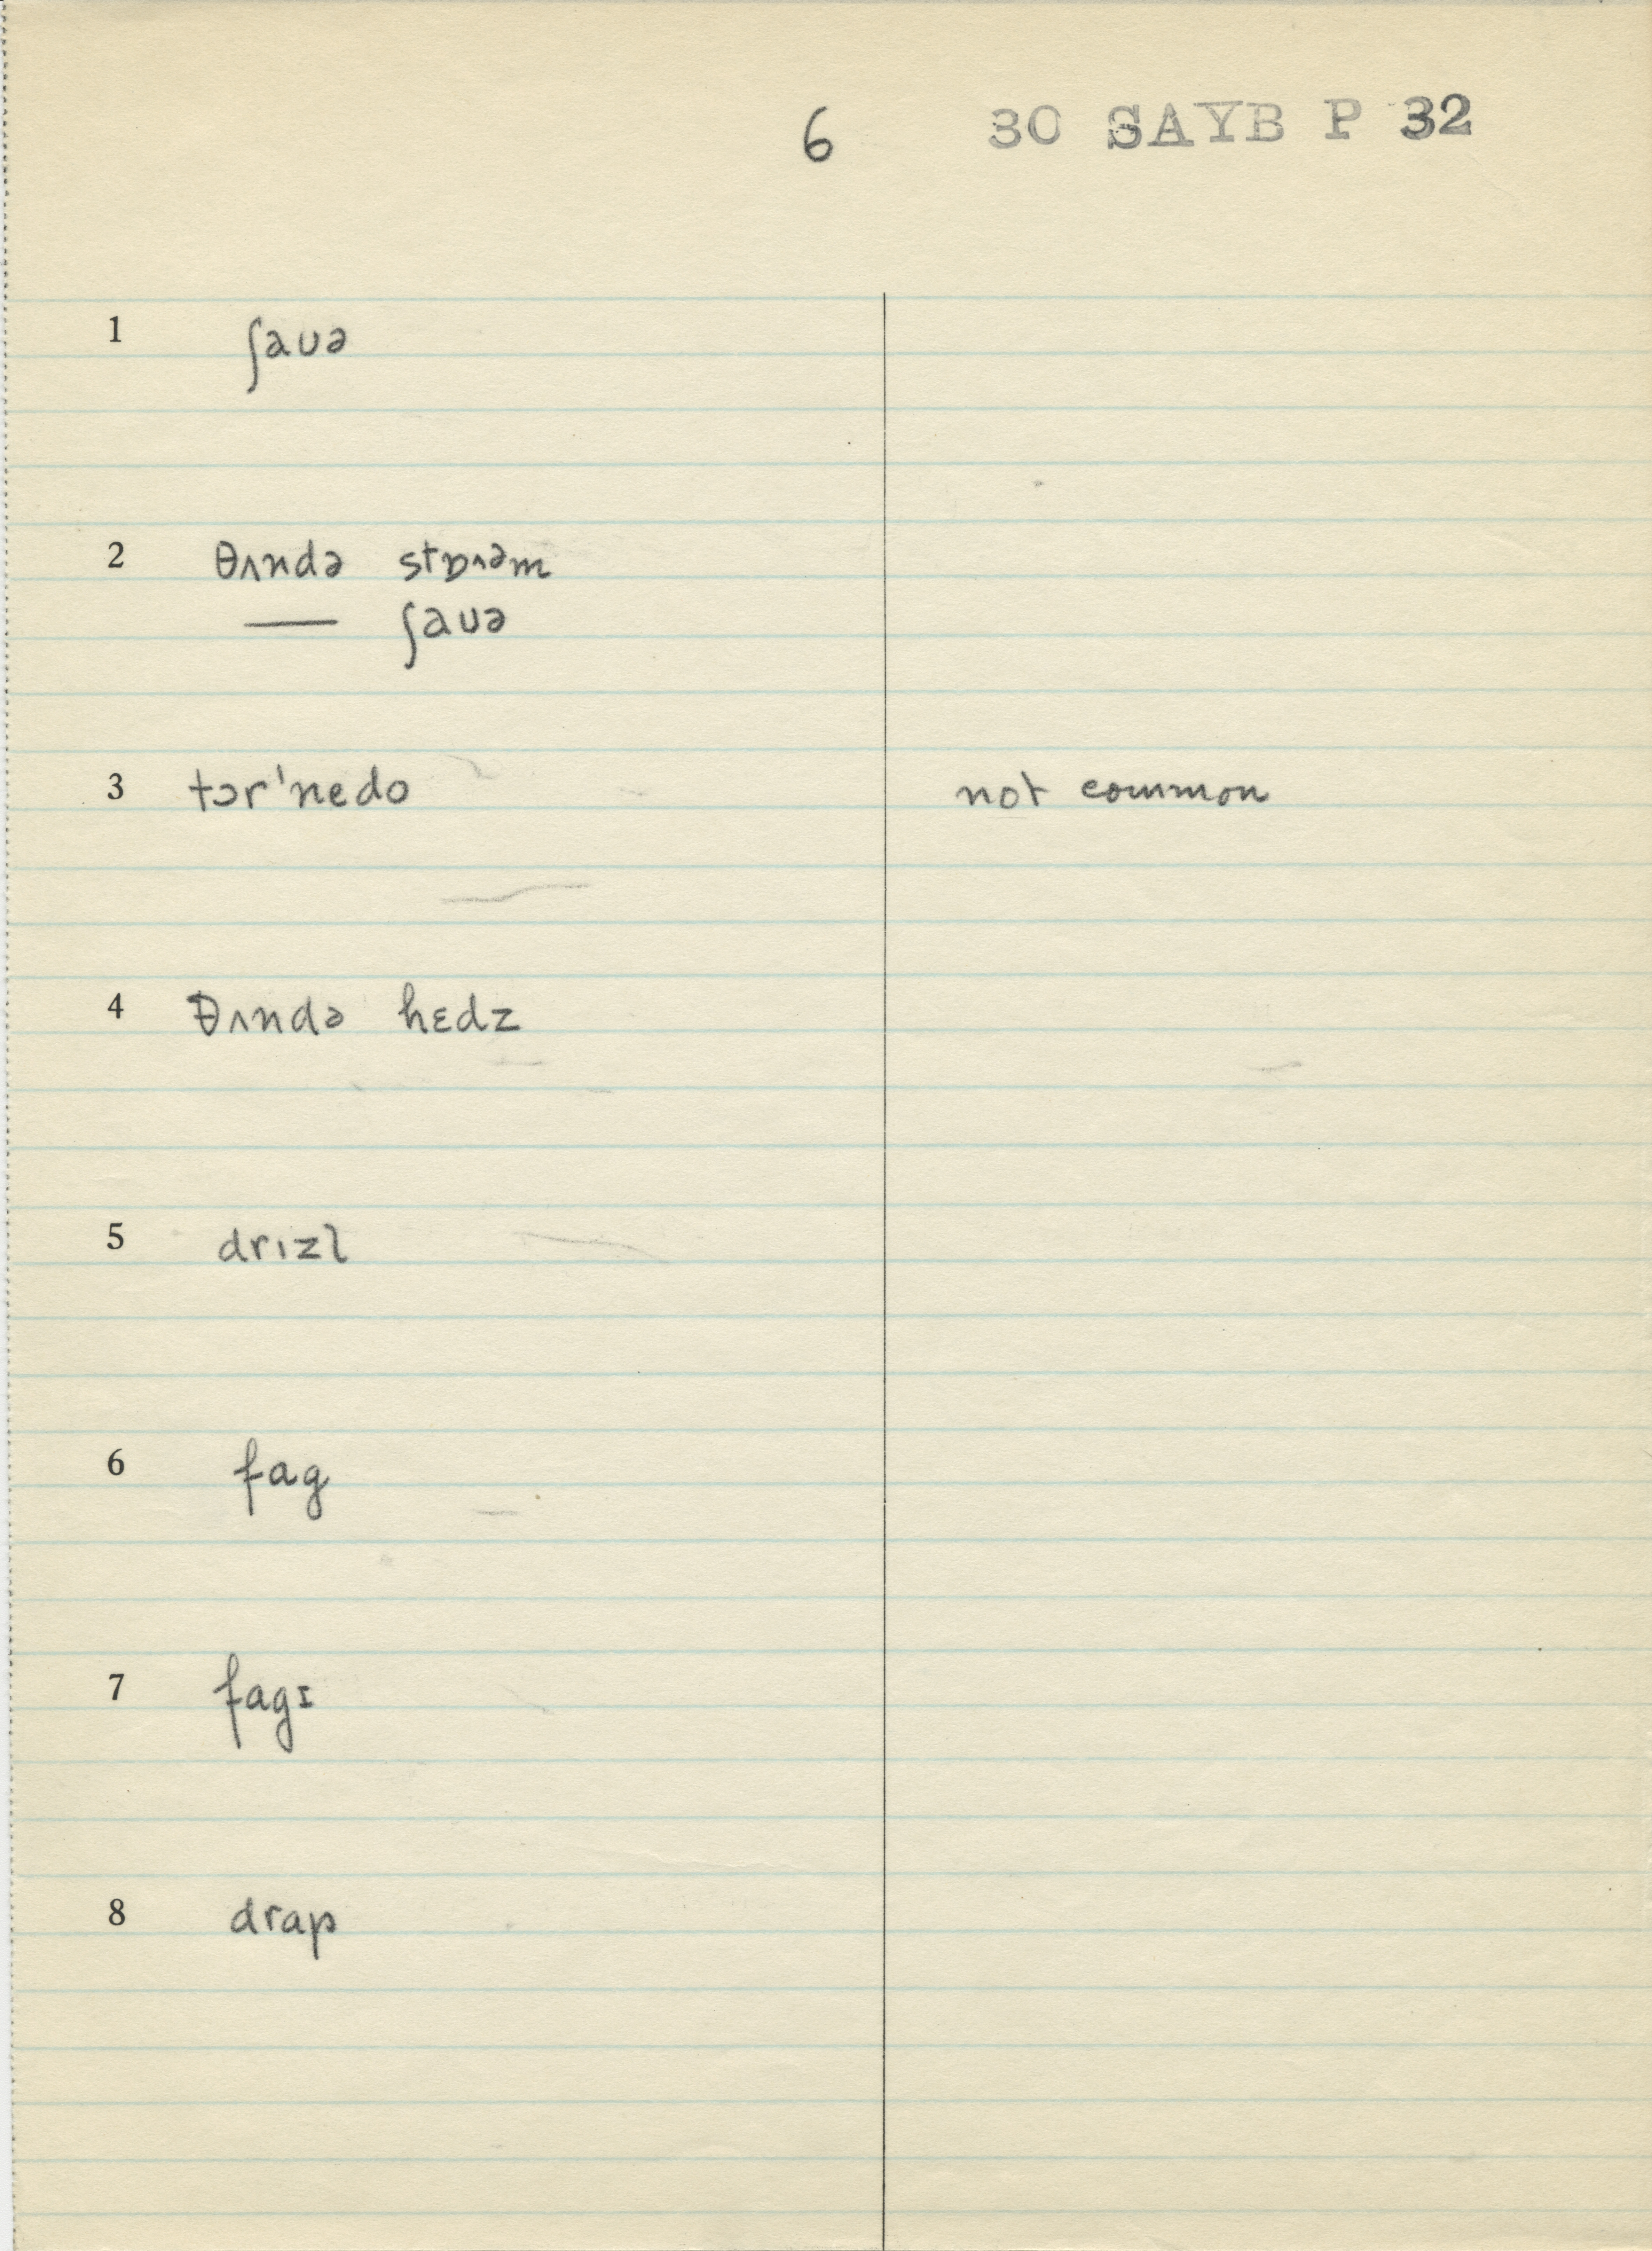 6 30 SAYB P 32
1 ʃauə
2 θʌndə stɒ˄əm
— ʃauə
3 tɔr'nedo not common
4 θʌndə hɛdz
5 drızl
6 fag
7 fagɪ
8 drap